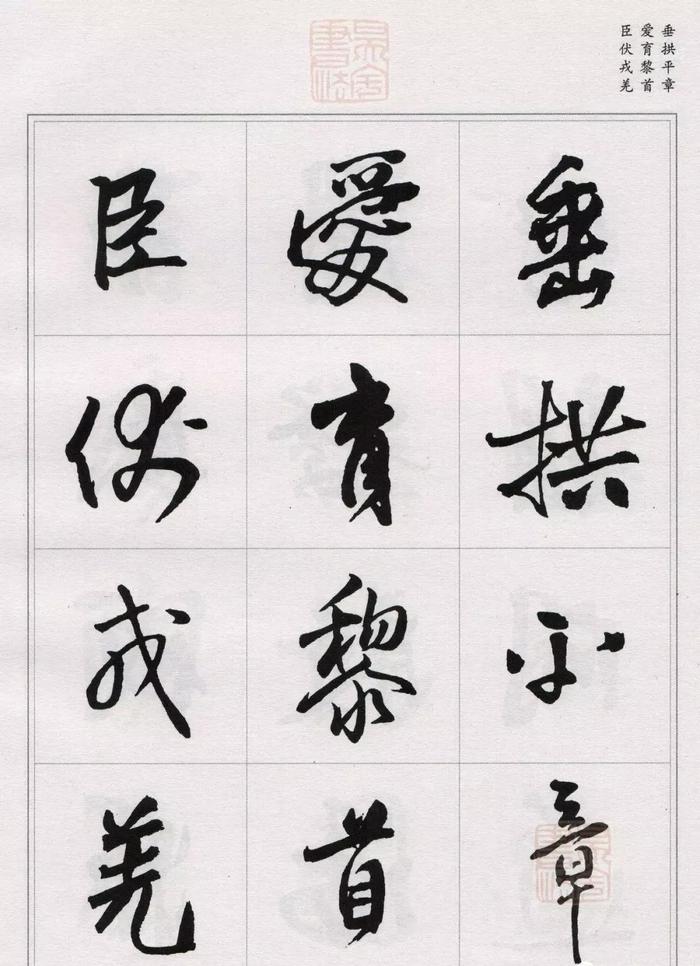 垂拱平章
爱育黎首
臣伏戎羌
垂拱平章
愛育黎首
臣伏戎羌